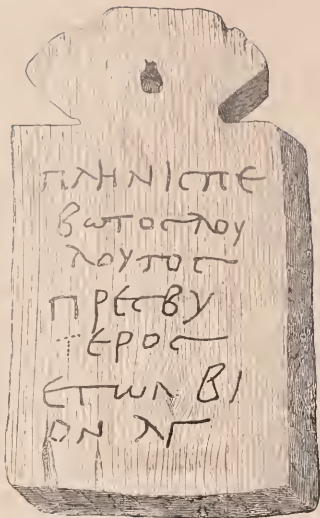 ΠλΗΝΙϹΠΕ
βωΤΟϹλΟΥ
λΟΥΤΟϹ
ΠΡΕϹΒΥ
ΤΕΡΟϹ
ΕΤωΝ ΒΙ
ΟΝ λΓ